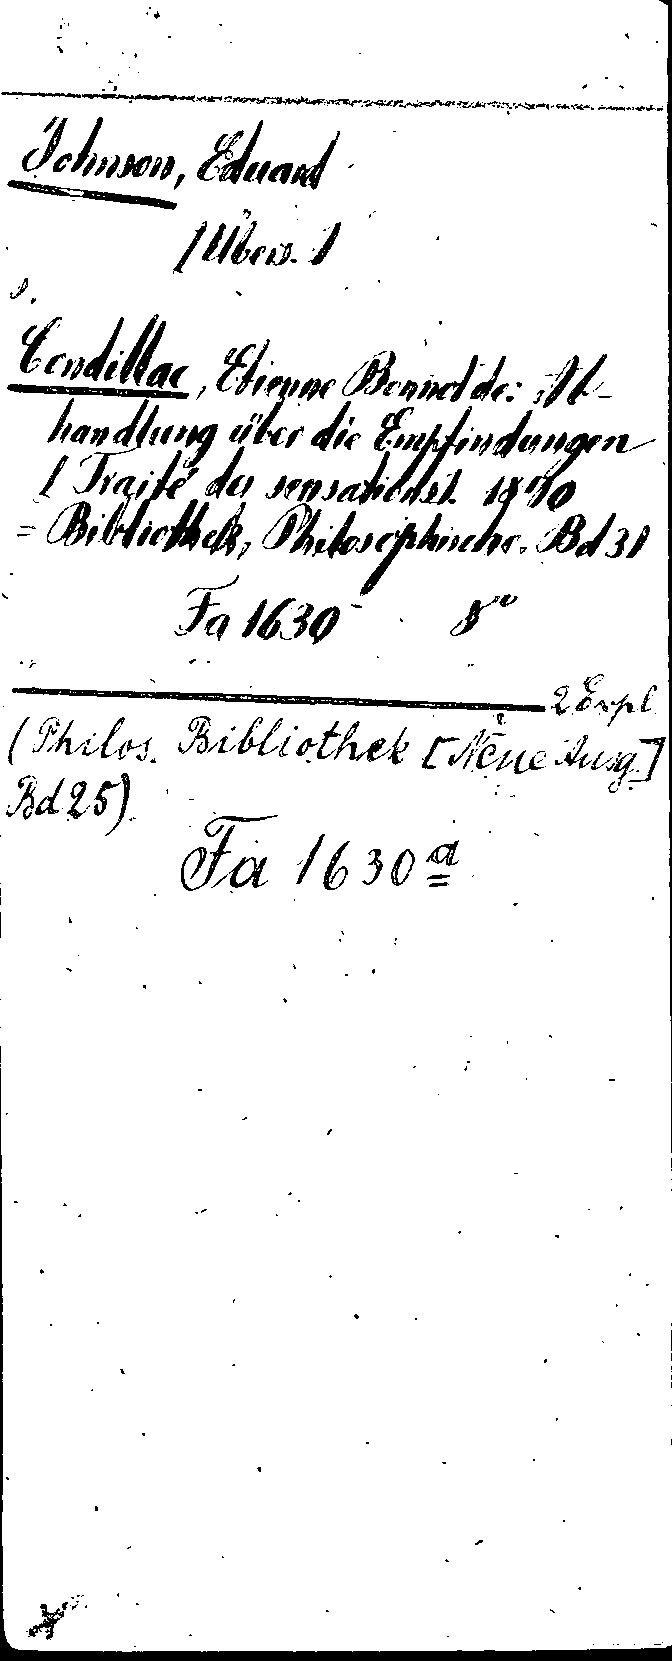 Johnson, Eduard
[Übers.]
s.
Condillac, Etienne Bonnot de: Ab-
handlung über die Empfindungen
[Traité des sensations]. 1870
= Bibliothek, Philosophische. Bd 31
Fa 1630 8°
2 Expl
(Philos. Bibliothek [Neue Ausg.]
Bd 25)
Fa 1630 a